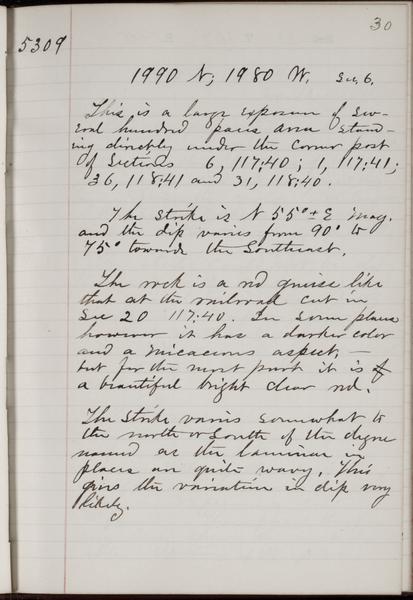 30
5309
1990 N; 1980 W. Sec. 6.
This is a large exposure of sev-
eral hundred paces area stand-
ing directly under the corner post
of Sections 6, 117:40; 1, 117:41;
36, 118:41 and 31, 118:40.
The strike is N 55° ± E mag.
and the dip varies from 90° to
75° towards the Southeast.
The rock is a red gneiss like
that at the railroad cut in
Sec 20 117:40. In some places
however it has a darker color
and a micaceous aspect, —
but for the most part it is of
a beautiful bright clear red.
The strike varies somewhat to
the north or south of the degree
named as the laminae in
places are quite wavy. This
gives the variation in dip very
likely.